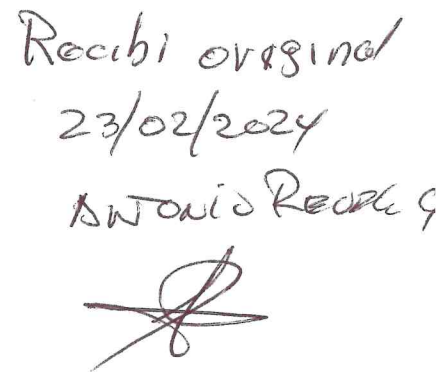 Recibi original
23/02/2024
ANTONIO